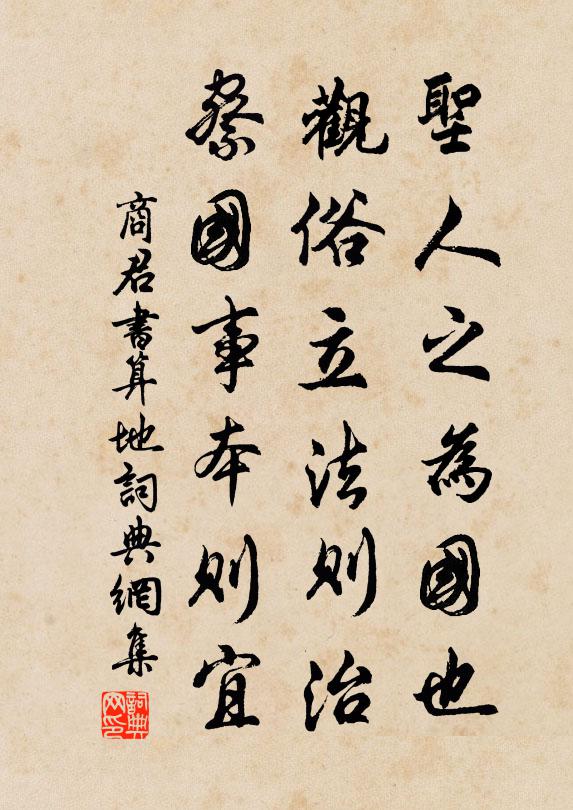 聖人之為國也
觀俗立法則治
察國事本則宜
商君書算地詞典網集
詞典网印